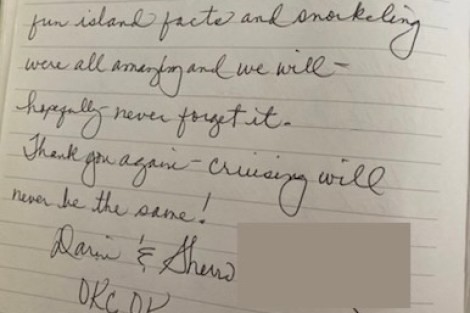 fun island facts and snorkeling
were all amazing and we will -
hopefully never forget it.
Thank you again - cruising will
never be the same!
&
OKC, OK